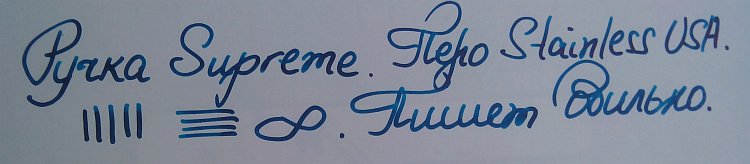 Ручка Supreme. Перо Stainless USA.
∞. Пишет Обильно.